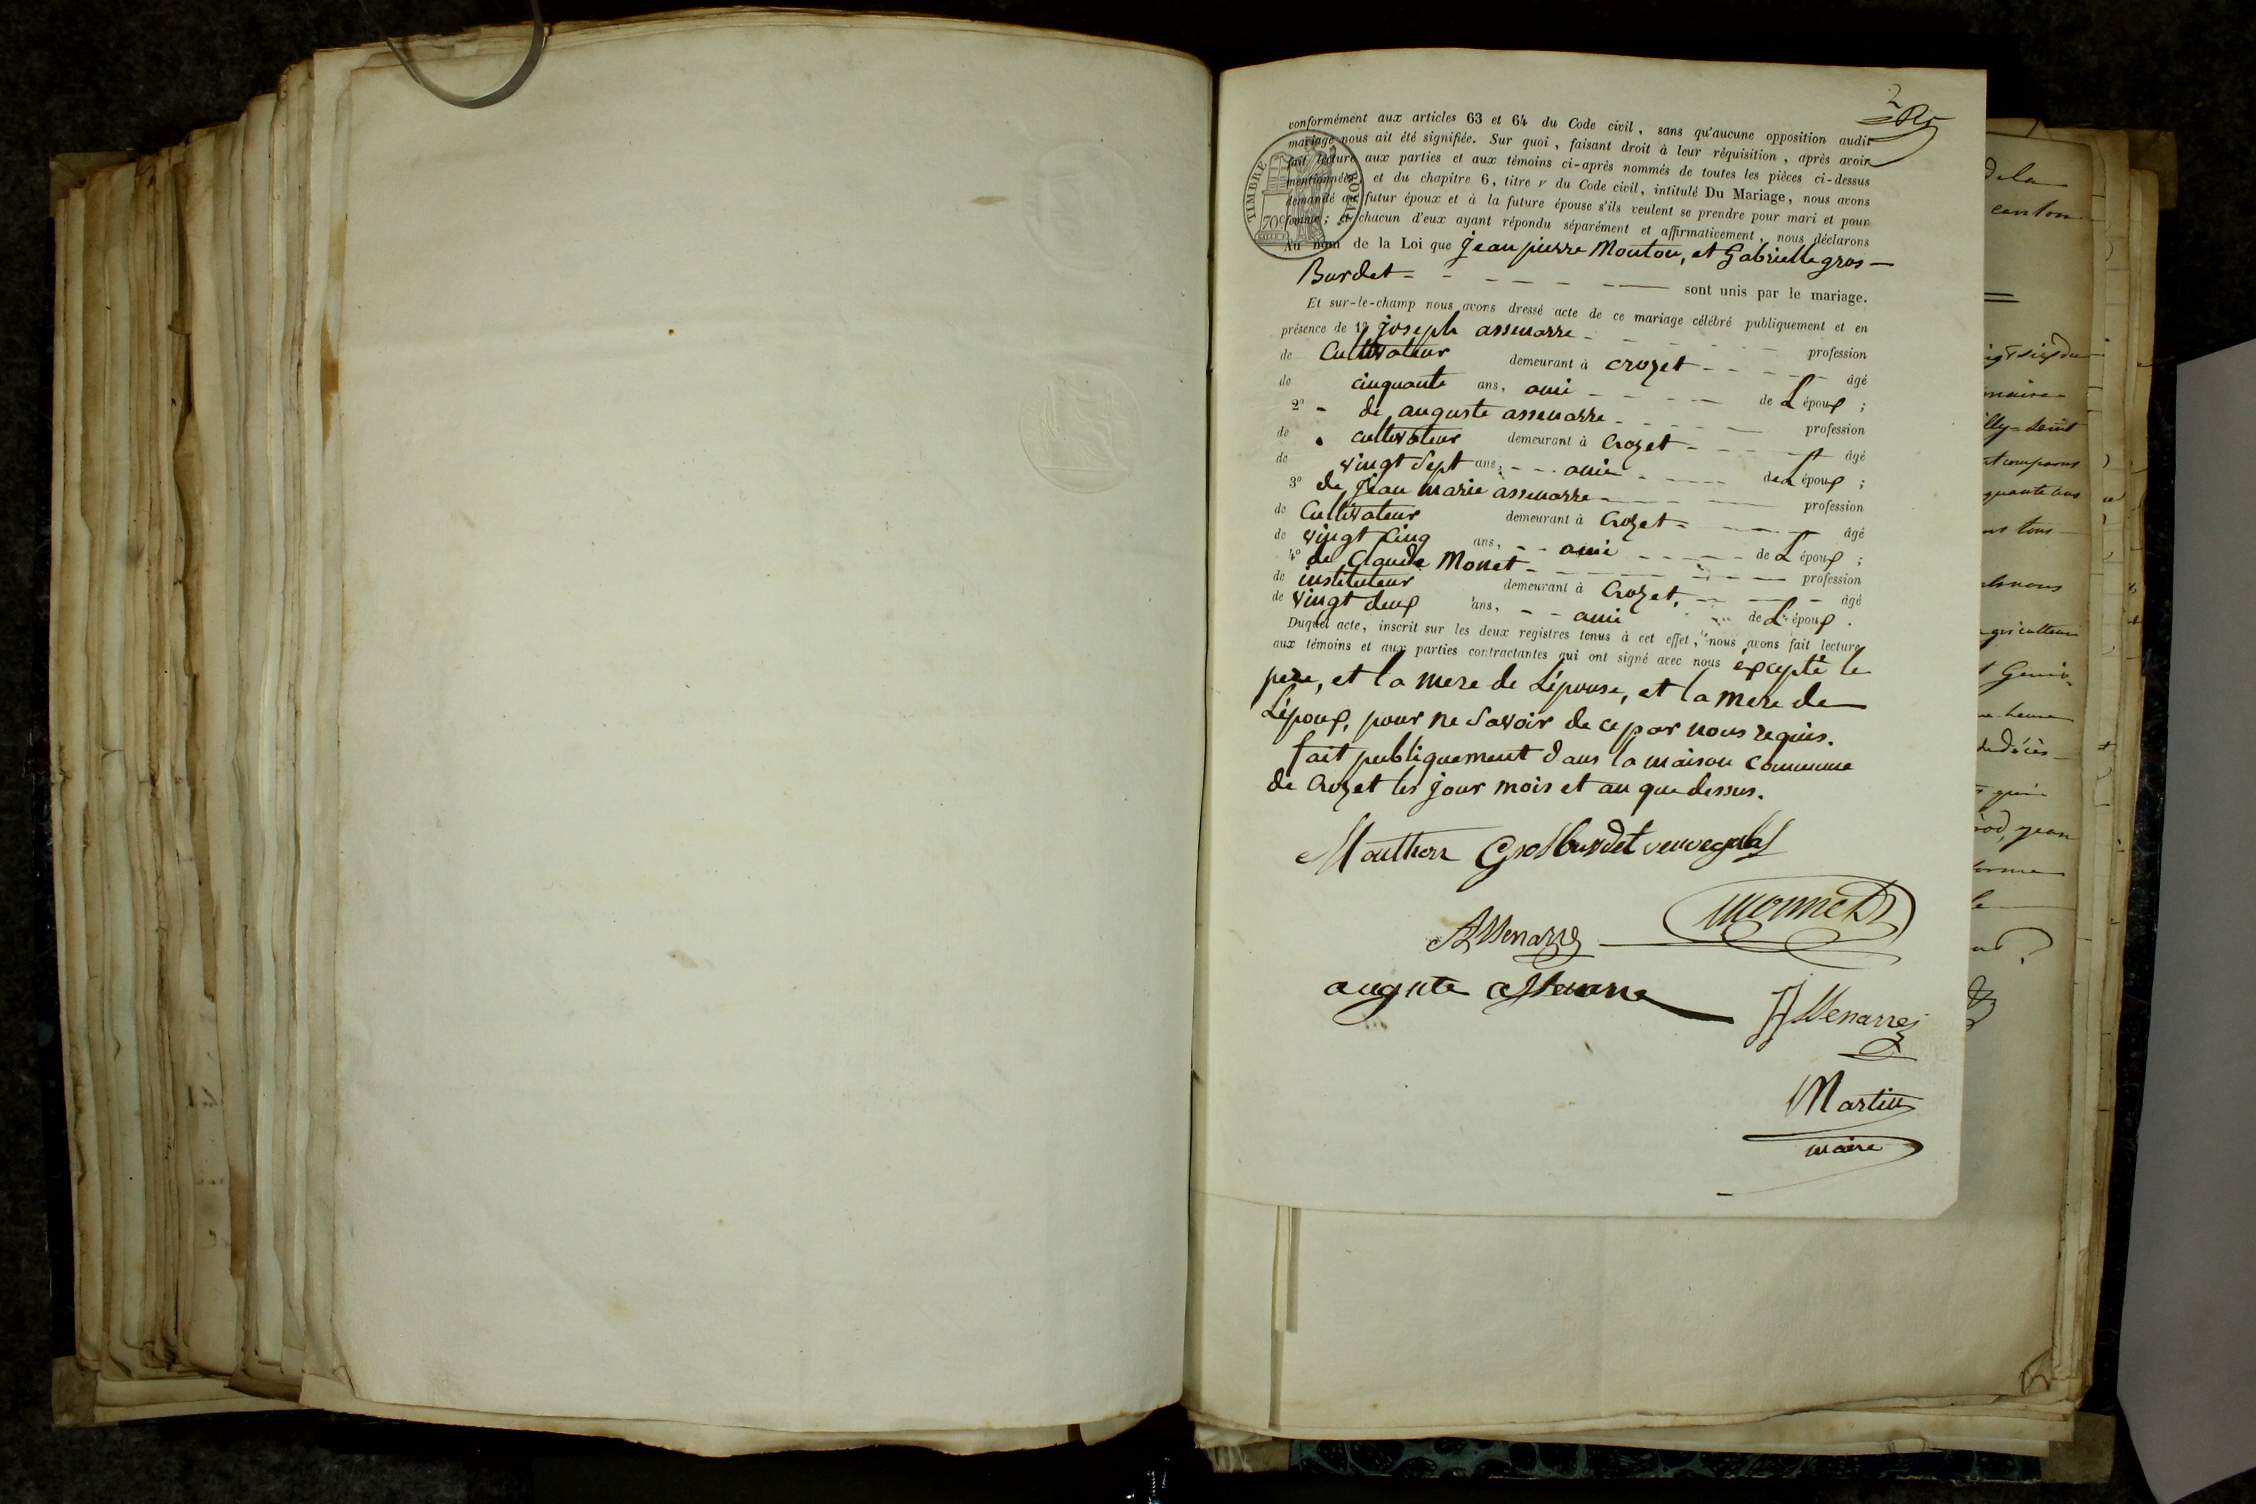 2
conformément aux articles 63 et 64 du Code civil, sans qu'aucune opposition audit
mariage nous ait été signifiée. Sur quoi, faisant droit à leur réquisition, après avoir
fait lecture aux parties et aux témoins ci-après nommés de toutes les pièces ci-dessus
mentionnées et du chapitre 6, titre v du Code civil, intitulé Du Mariage, nous avons
demandé au futur époux et à la future épouse s'ils veulent se prendre pour mari et pour
femme; et chacun d'eux ayant répondu séparément et affirmativement, nous déclarons
Au nom de la Loi que jean pierre Mouton, et Gabrielle gros-
Burdet - - - - - - sont unis par le mariage.
Et sur-le-champ nous avons dressé acte de ce mariage célébré publiquement et en
présence de 1º joseph assenarre - - - - profession
de Cultivateur demeurant à crozet - - - - âgé
de cinquante ans, ami - - - - de L époux ;
2º - de auguste assenarre - - - - profession
de cultivateur demeurant à Crozet - - - - âgé
de vingt sept ans, - - . ami - - - de L époux ;
3º de jean marie assenarre - - - profession
de Cultivateur demeurant à Crozet - - - - âgé
de vingt cinq ans, - - ami - - - - de L époux ;
4º de Claude Monet - - - - - - profession
de instituteur demeurant à Crozet, - - - âgé
de vingt deux ans, - - ami de L époux .
Duquel acte, inscrit sur les deux registres tenus à cet effet, nous avons fait lecture
aux témoins et aux parties contractantes qui ont signé avec nous éxcepté le
pere, et la mere de Lépouse, et la mere de
Lépoux, pour ne Savoir de ce par nous requis.
fait publiquement dans la maison commune
de Crozet les jour mois et an que dessus.
Mouthon Grosburdet
monnet
Assenarre
auguste assenarre
J Assenarre
Martin
maire
TIMBRE ROYAL
70c
de la
canton
maire
quante ans
ns tous
agriculteur
heure
de décès
qui
jean